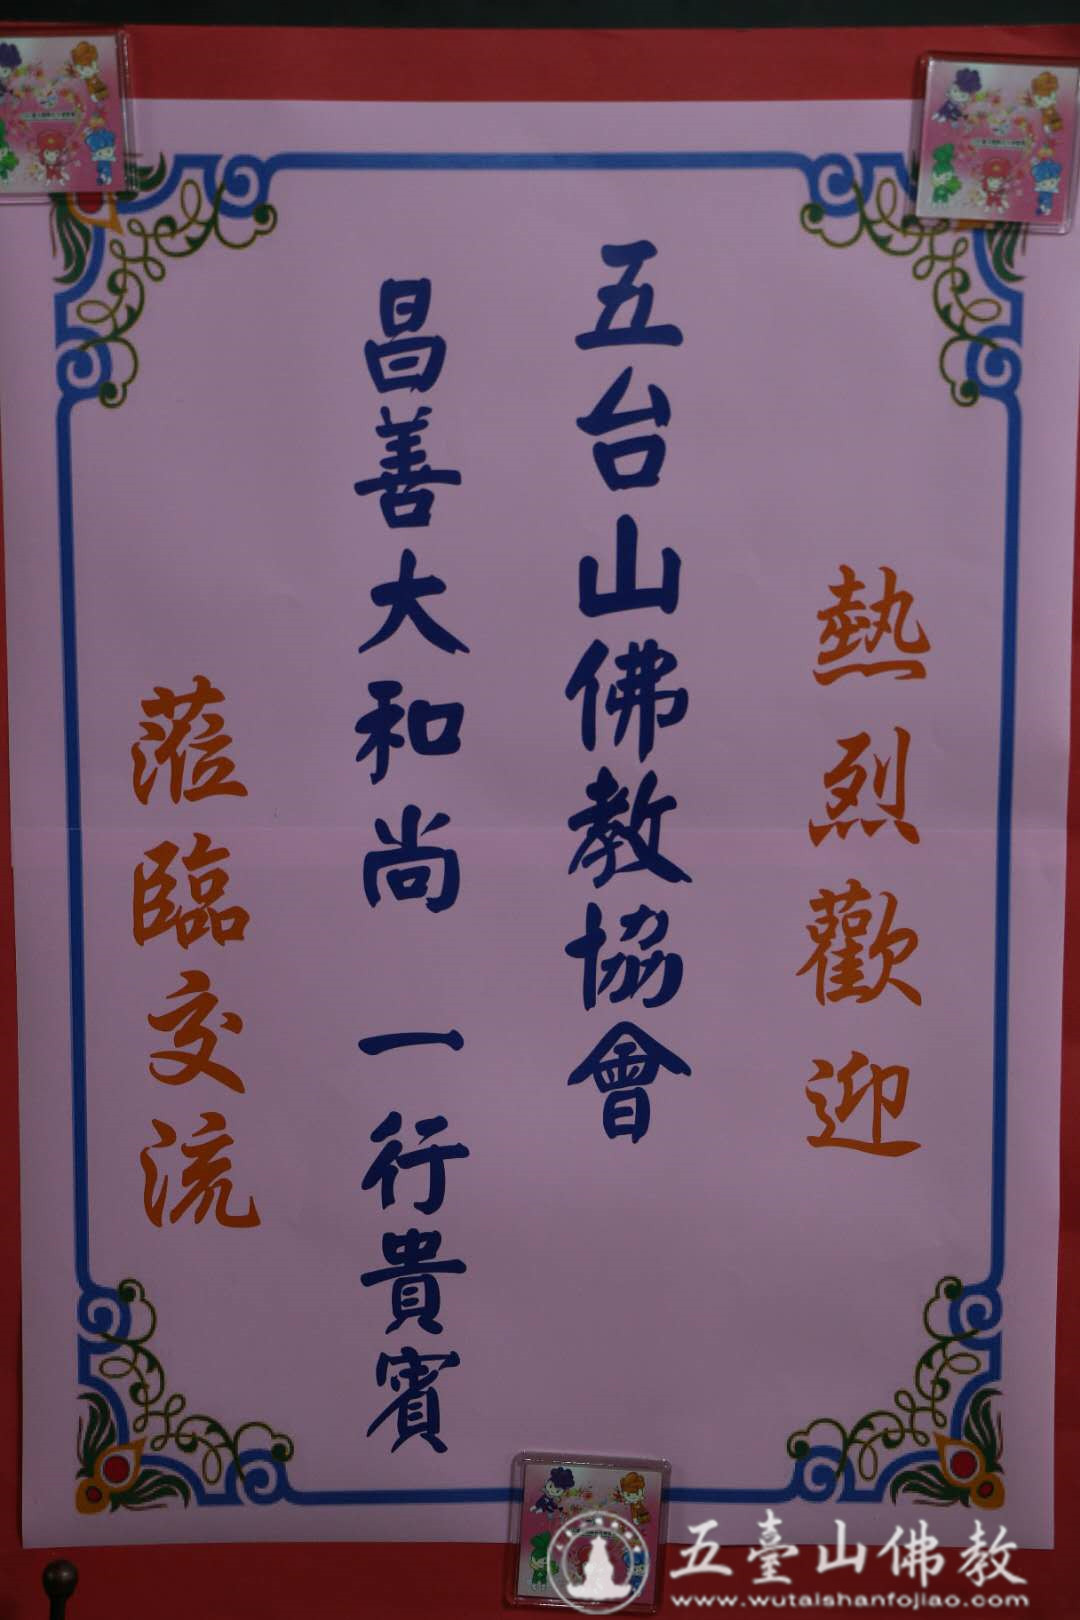 熱烈歡迎
五台山佛教協會
昌善大和尚 一行貴賓
蒞臨交流
五臺山佛教
www.wutaishanfojiao.com